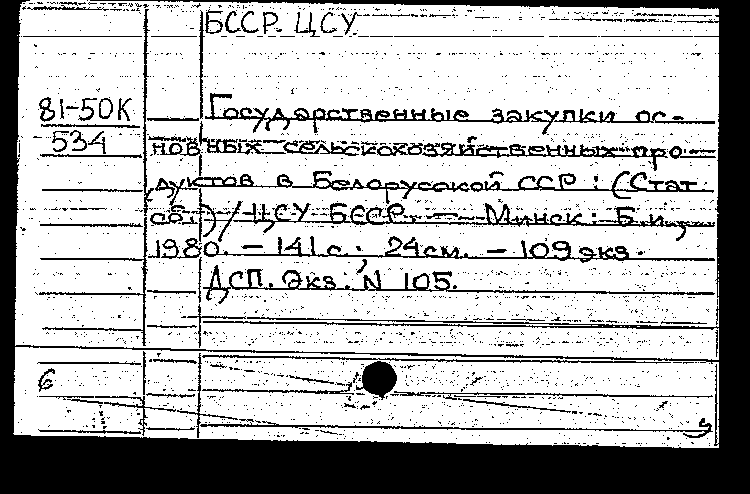 БССР. ЦСУ
81-50К Государственные закупки ос-
534 новных сельскохозяйственных про-
дуктов в Белорусской ССР : (Стат.
сб.) / ЦСУ БССР. — Минск : Б.и.,
1980. — 141 с. ; 24 см. — 109 экз.
ДСП. Экз. N 105.
б